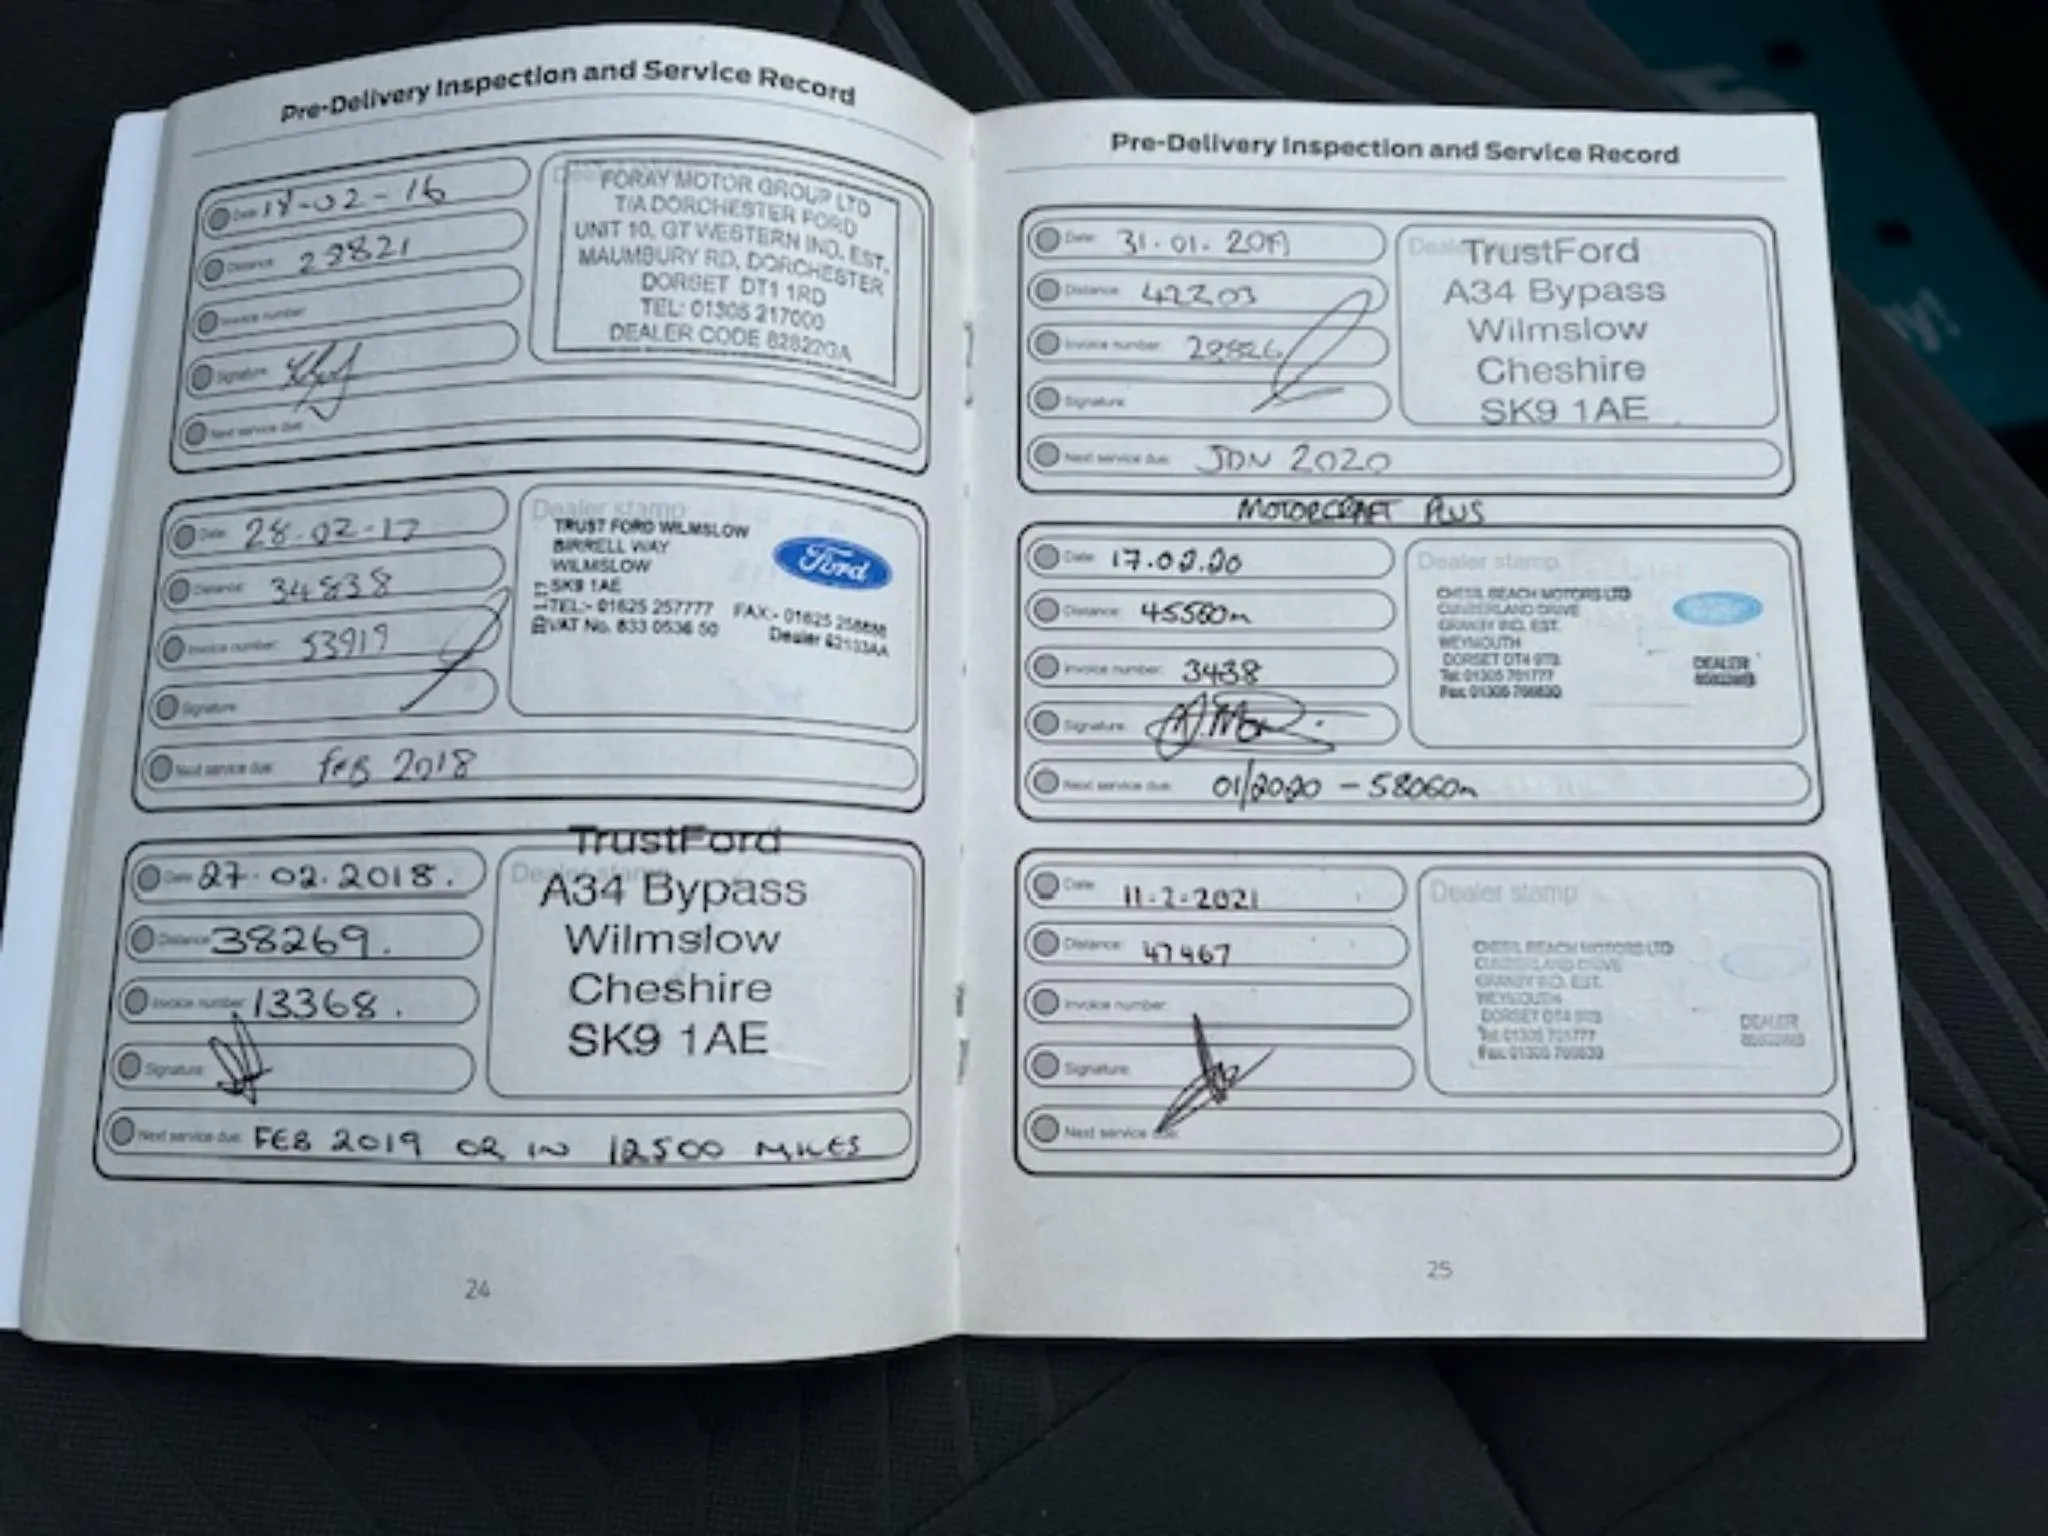 Pre-Delivery Inspection and Service Record
Date: 18-02-16
Distance: 28821
Invoice number:
Signature:
Next service due:
FORAY MOTOR GROUP LTD
T/A DORCHESTER FORD
UNIT 10, GT WESTERN IND. EST.
MAUMBURY RD, DORCHESTER
DORSET DT1 1RD
TEL: 01305 217000
DEALER CODE 62822GA
Date: 28.02.17
Distance: 34838
Invoice number: 53919
Signature:
Next service due: FEB 2018
Dealer stamp
TRUST FORD WILMSLOW
BIRRELL WAY
WILMSLOW
SK9 1AE
TEL:- 01625 257777 FAX:- 01625 258888
VAT No. 833 0536 50 Dealer 62133AA
Ford
Date: 27.02.2018.
Distance: 38269.
Invoice number: 13368.
Signature:
Next service due: FEB 2019 OR IN 12500 MILES
Dealer stamp
TrustFord
A34 Bypass
Wilmslow
Cheshire
SK9 1AE
24
Pre-Delivery Inspection and Service Record
Date: 31.01.2019
Distance: 42203
Invoice number: 28826
Signature:
Next service due: JAN 2020
TrustFord
A34 Bypass
Wilmslow
Cheshire
SK9 1AE
MOTORCRAFT PLUS
Date: 17.02.20
Distance: 45560m
Invoice number: 3438
Signature:
Next service due: 01/2020 - 58060m
Dealer stamp
CHESIL BEACH MOTORS LTD
CUMBERLAND DRIVE
GRANBY IND. EST.
WEYMOUTH
DORSET DT4 9TB
Tel: 01305 701777
Fax: 01305 766630
Ford
DEALER
Date: 11.2.2021
Distance: 47467
Invoice number:
Signature:
Next service due:
Dealer stamp
CHESIL BEACH MOTORS LTD
CUMBERLAND DRIVE
GRANBY IND. EST.
WEYMOUTH
DORSET DT4 9TB
Tel: 01305 701777
Fax: 01305 766630
DEALER
25